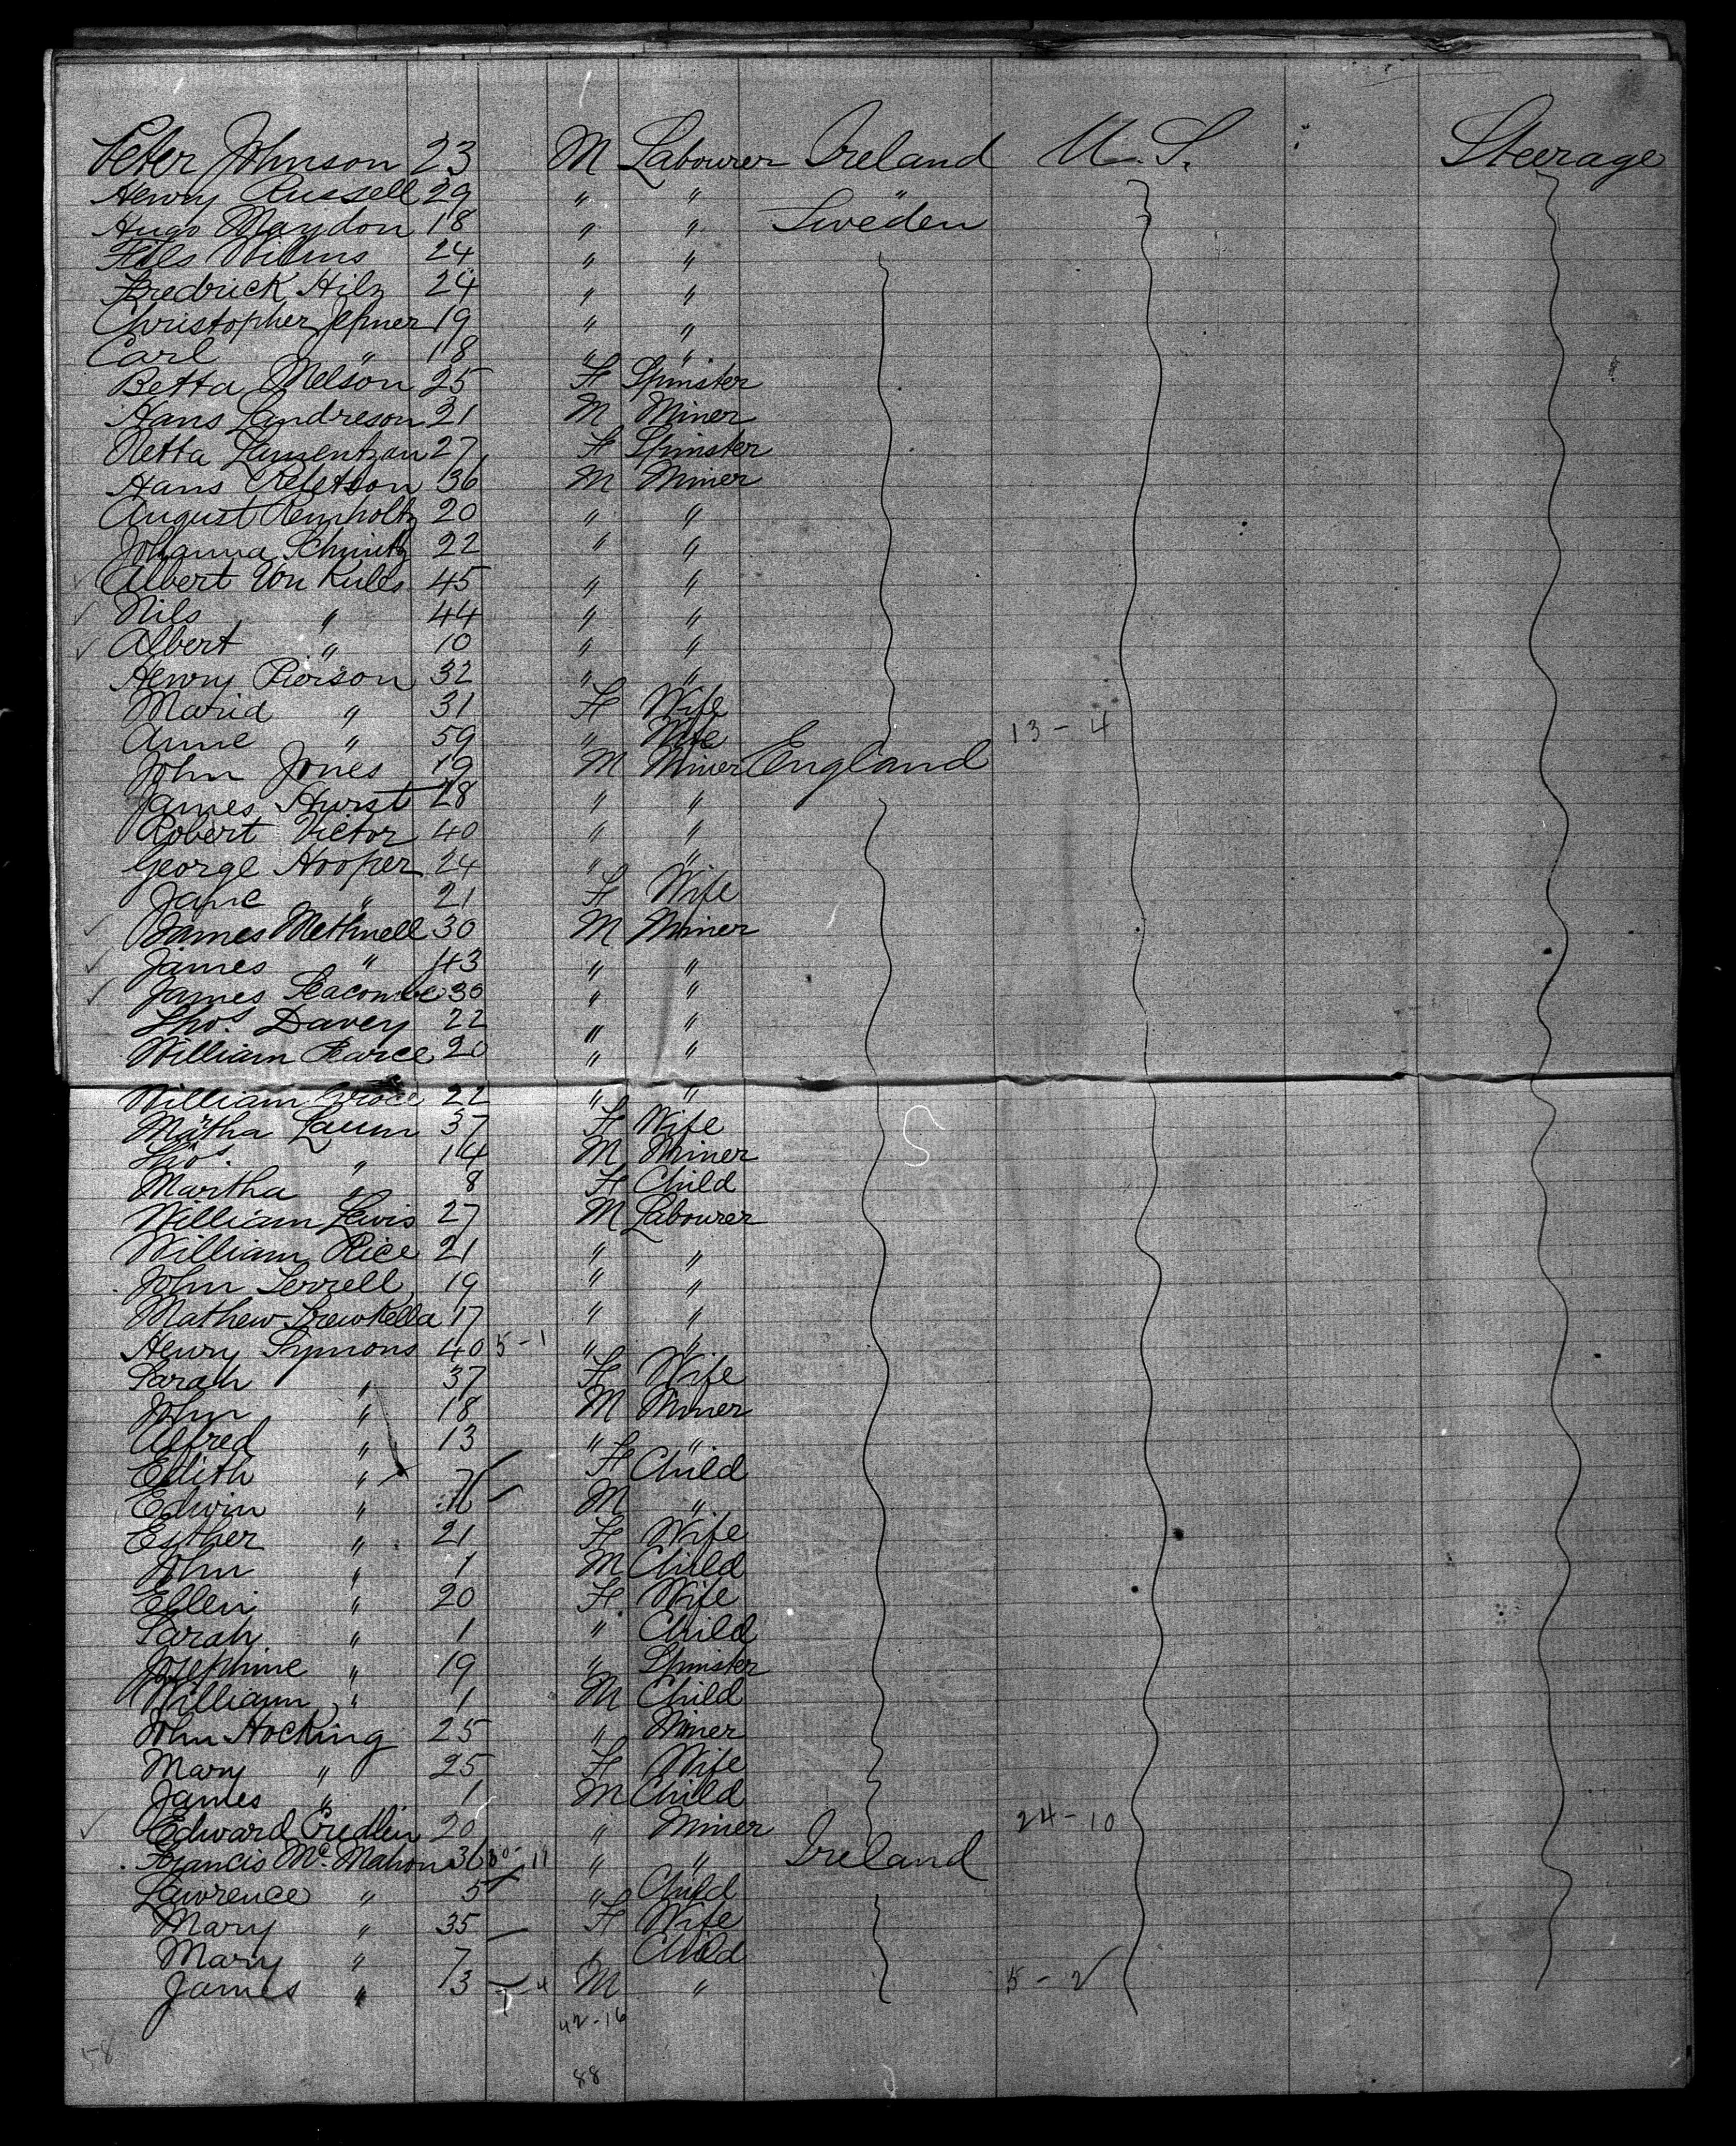 Peter Johnson 23 M Labourer Ireland U. S. Steerage
Henry Russell 29 " "
Hugo Maydon 18 " " Sweden
Wilms 24 " "
Fredrick Hilz 24 " "
Christopher 19 " "
Carl " 18 " "
Betta Nelson 25 F Spinster
Hans Landreson 21 M Miner
Netta Lamentzan 27 F Spinster
Hans Peletson 36 M Miner
August Remholtz 20 " "
Johanna Schmitz 22 " "
Albert Von Kules 45 " "
Nils " 44 " "
Albert " 10 " "
Henry Pierson 32 " "
Maria " 31 F Wife
Anne " 59 " Wife 13 - 4
John Jones 19 M Miner England
James Hurst 28 " "
Robert Victor 40 " "
George Hooper 24 " "
Jane " 21 F Wife
James Methwell 30 M Miner
James " 43 " "
James Seacombe 30 " "
Thos. Davey 22 " "
William Pearce 20 " "
William 22 " "
Matha Laum 37 F Wife
Thos. " 14 M Miner
Martha " 8 F Child
William Lewis 27 M Labourer
William Rice 21 " "
John Terrell 19 " "
Mathew Trewkella 17 " "
Henry Symons 40 5 - 1 " "
Sarah " 37 F Wife
John " 18 M Miner
Alfred " 13 " "
Edith " 7 F Child
Edwin " M "
Esther " 21 F Wife
John " 1 M Child
Ellen " 20 F Wife
Sarah " 1 " Child
Josephine " 19 " Spinster
William " 1 M Child
John Hocking 25 " Miner
Mary " 25 F Wife
James " 1 M Child
Edward Credlin 20 " Miner 24 - 10
Francis Mc. Mahon 36 11 " " Ireland
Lawrence " 5 " Child
Mary " 35 F Wife
Mary " 7 " Child
James " 3 M " 5 - 2
42 - 16
58
88